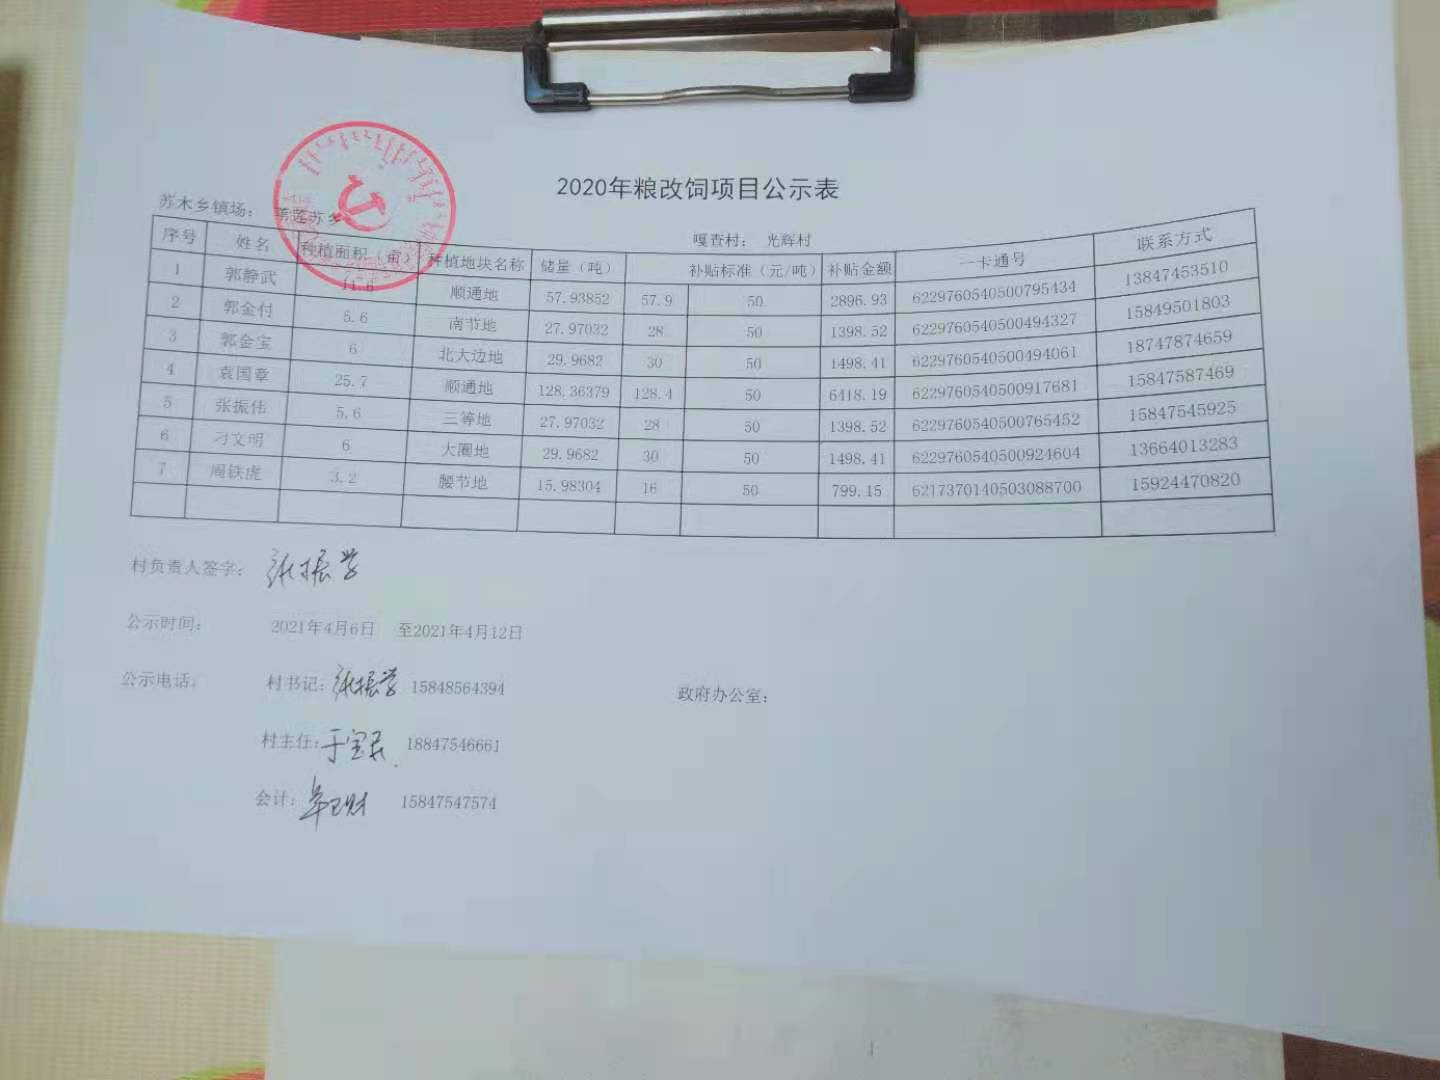 2020年粮改饲项目公示表
苏木乡镇场： 莲苏乡
嘎查村： 光辉村
序号 姓名 种植面积（亩） 种植地块名称 储量（吨） 补贴标准（元/吨） 补贴金额 一卡通号 联系方式
1 郭静武 11.6 顺通地 57.93852 57.9 50 2896.93 6229760540500795434 13847453510
2 郭金付 5.6 南节地 27.97032 28 50 1398.52 6229760540500494327 15849501803
3 郭金宝 6 北大边地 29.9682 30 50 1498.41 6229760540500494061 18747874659
4 袁国章 25.7 顺通地 128.36379 128.4 50 6418.19 6229760540500917681 15847587469
5 张振伟 5.6 三等地 27.97032 28 50 1398.52 6229760540500765452 15847545925
6 刁文明 6 大圈地 29.9682 30 50 1498.41 6229760540500924604 13664013283
7 周铁虎 3.2 腰节地 15.98304 16 50 799.15 6217370140503088700 15924470820
村负责人签字： 张振学
公示时间： 2021年4月6日 至2021年4月12日
公示电话： 村书记：张振学 15848564394 政府办公室：
村主任：于宝民 18847546661
会计： 15847547574